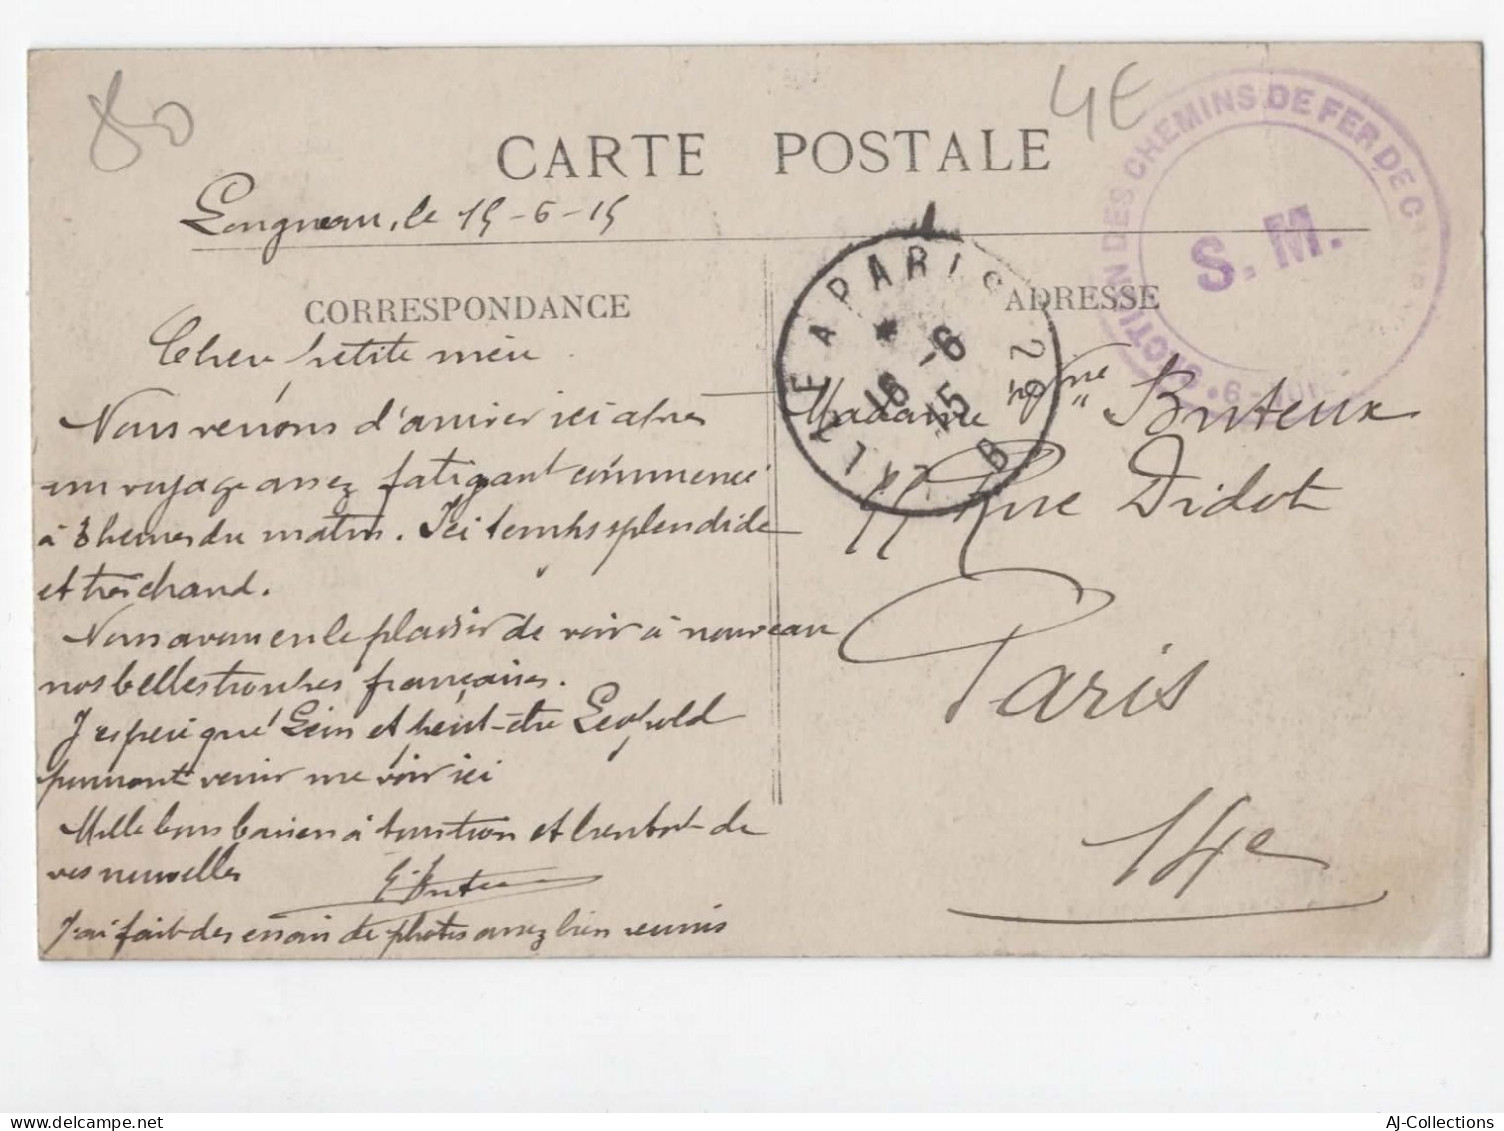 80
4E
CARTE POSTALE
Longueau, le 15-6-15
CORRESPONDANCE
ADRESSE
CHEMINS DE FER DE C
S. M.
CALAIS A PARIS 2°
16 -6
15
B
Chère petite mère
Nous venons d'arriver ici après
un voyage assez fatigant commencé
à 3 heures du matin. Ici temps splendide
et très chaud.
Nous avons eu le plaisir de voir à nouveau
nos belles troupes françaises.
J'espère que Léon et peut-être Léopold
pourront venir me voir ici
Mille bons baisers à tous et
de
vos nouvelles
J'ai fait des essais de photos assez bien réunis
Madame Vve Buteux
Rue Didot
Paris
14e
AJ-Collections